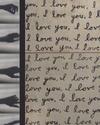 you, I love you, I
you, I love you, I
you, I love you, I
you, I love you, I
I love you, I love
love you, I love you,
love you, I love you,
love you, I love you,
love you, I love you,
love you, I love you,